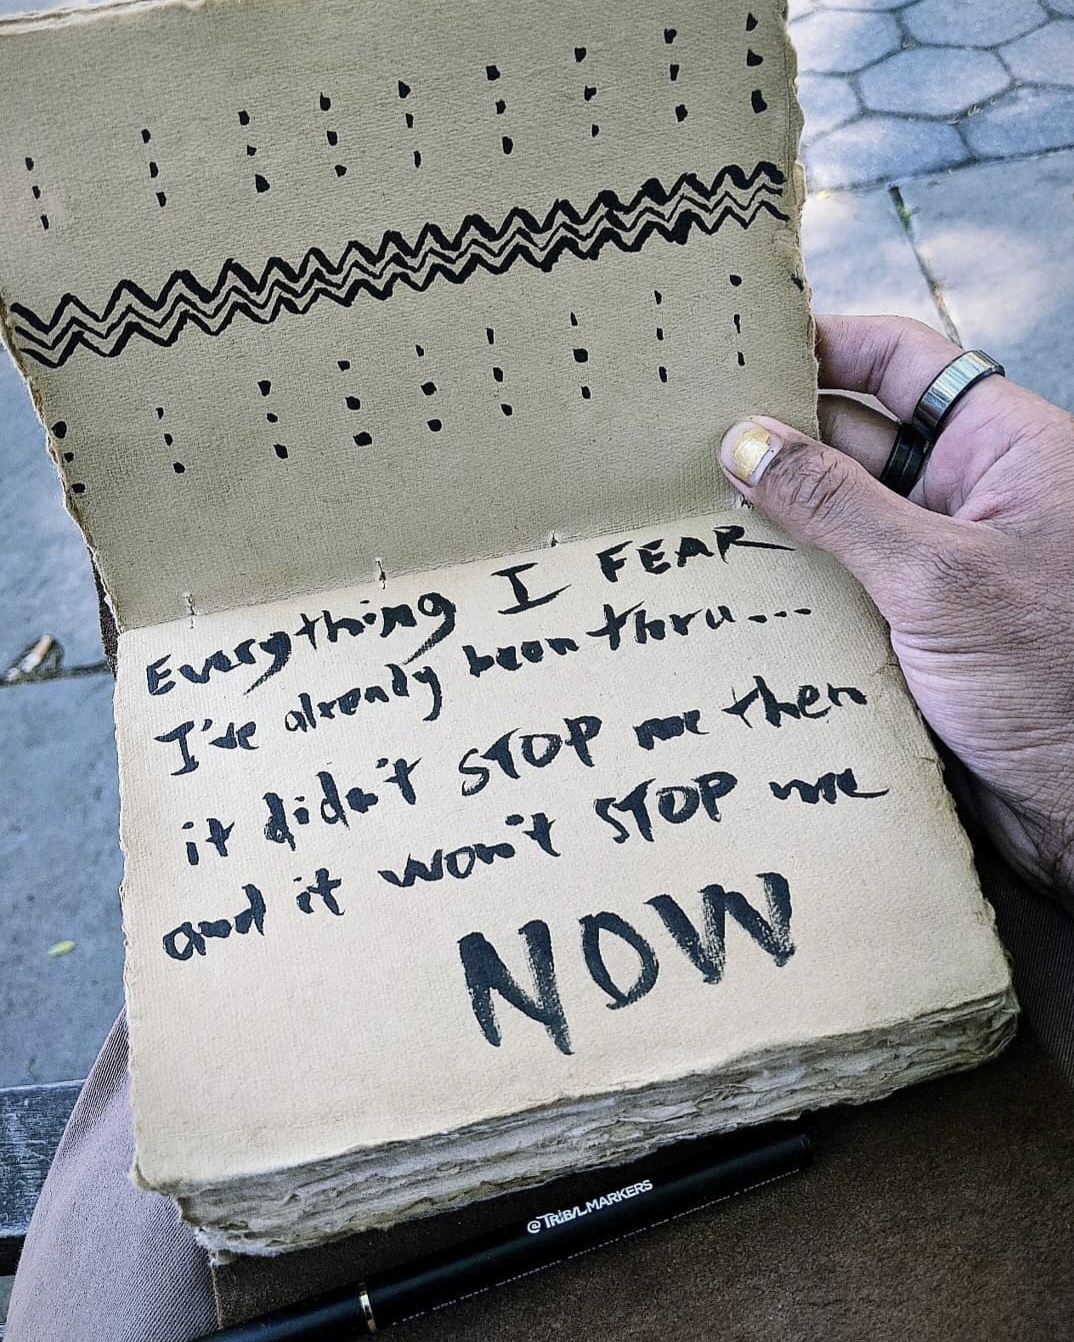 Everything I FEAR
I've already been thru...
it didn't STOP me then
and it won't STOP me
NOW
@TRIBALMARKERS